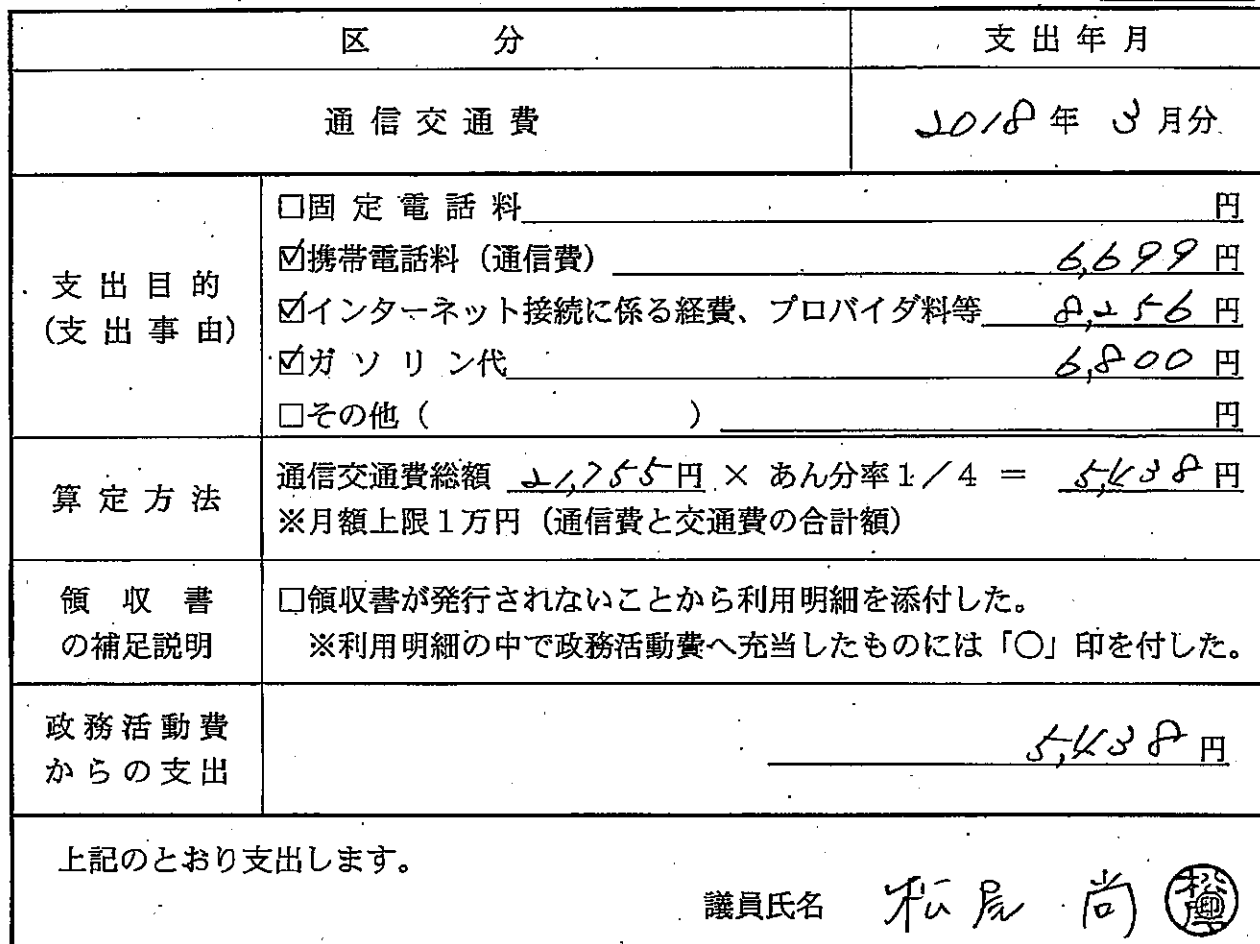 区分 支出年月
通信交通費 2018年 3月分
支出目的
(支出事由)
□固定電話料 円
☑携帯電話料（通信費） 6,699円
☑インターネット接続に係る経費、プロバイダ料等 8,256円
☑ガソリン代 6,800円
□その他（ ） 円
算定方法
通信交通費総額 21,755円 × あん分率1／4 ＝ 5,438円
※月額上限1万円（通信費と交通費の合計額）
領収書
の補足説明
□領収書が発行されないことから利用明細を添付した。
※利用明細の中で政務活動費へ充当したものには「○」印を付した。
政務活動費
からの支出
5,438円
上記のとおり支出します。
議員氏名 松尾 尚